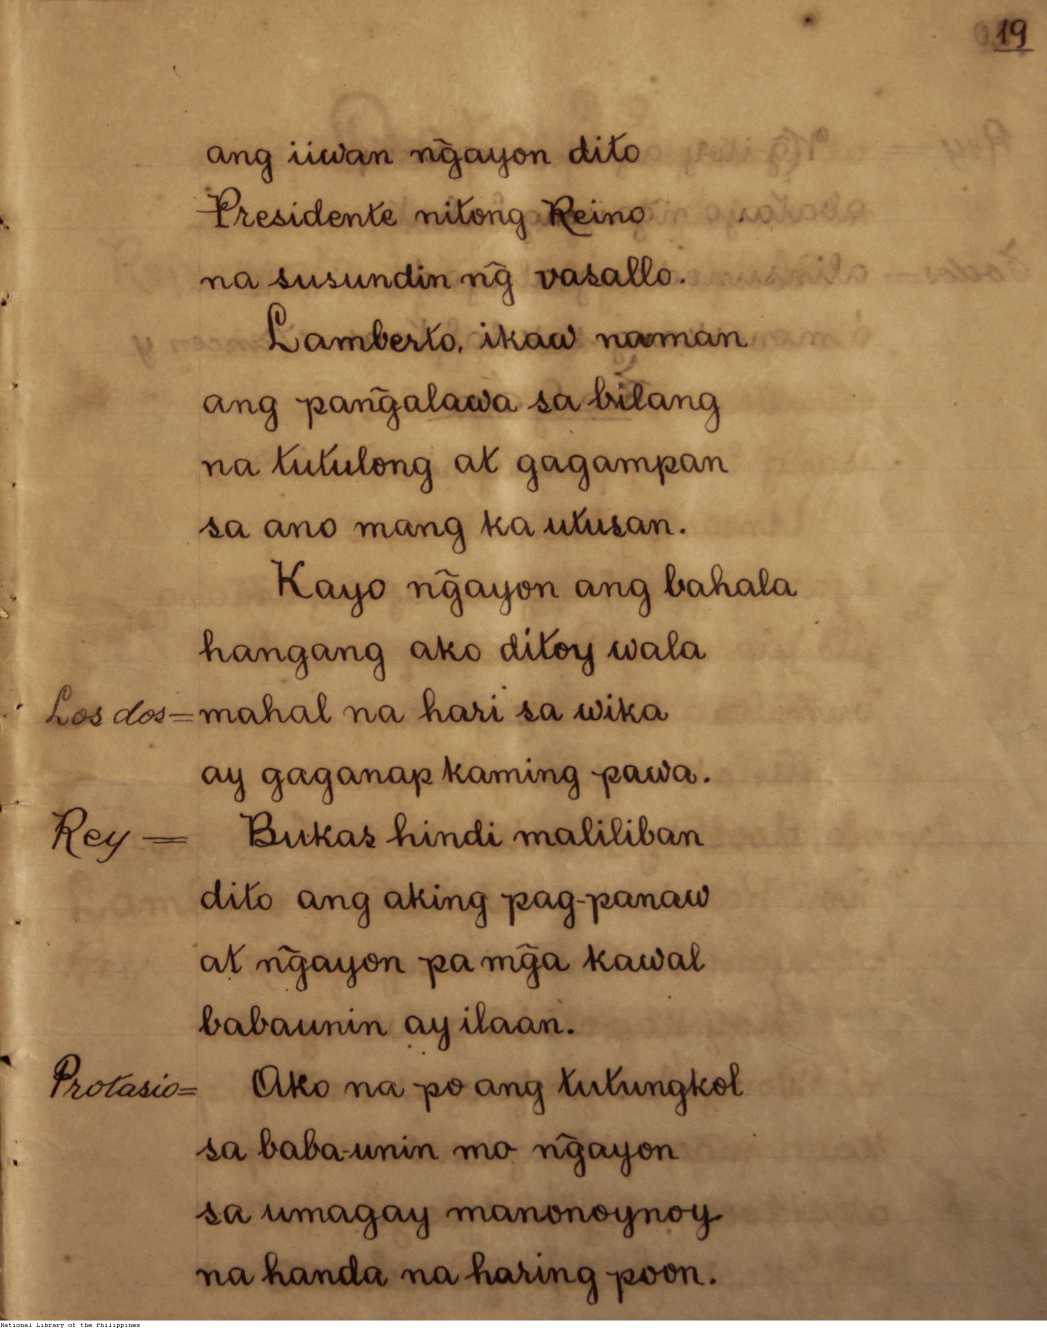 19
ang iiwan ñgayon dito
Presidente nitong Reino
na susundin ñg vasallo.
Lamberto, ikaw naman
ang pañgalawa sa bilang
na tutulong at gagampan
sa ano mang ka utusan.
Kayo ñgayon ang bahala
hangang ako ditoy wala
Los dos = mahal na hari sa wika
ay gaganap kaming pawa.
Rey = Bukas hindi maliliban
dito ang aking pag-panaw
at ñgayon pa mg̃a kawal
babaunin ay ilaan.
Protasio = Ako na po ang tutungkol
sa baba-unin mo ñgayon
sa umagay manonoynoy
na handa na haring poon.
National Library of the Philippines